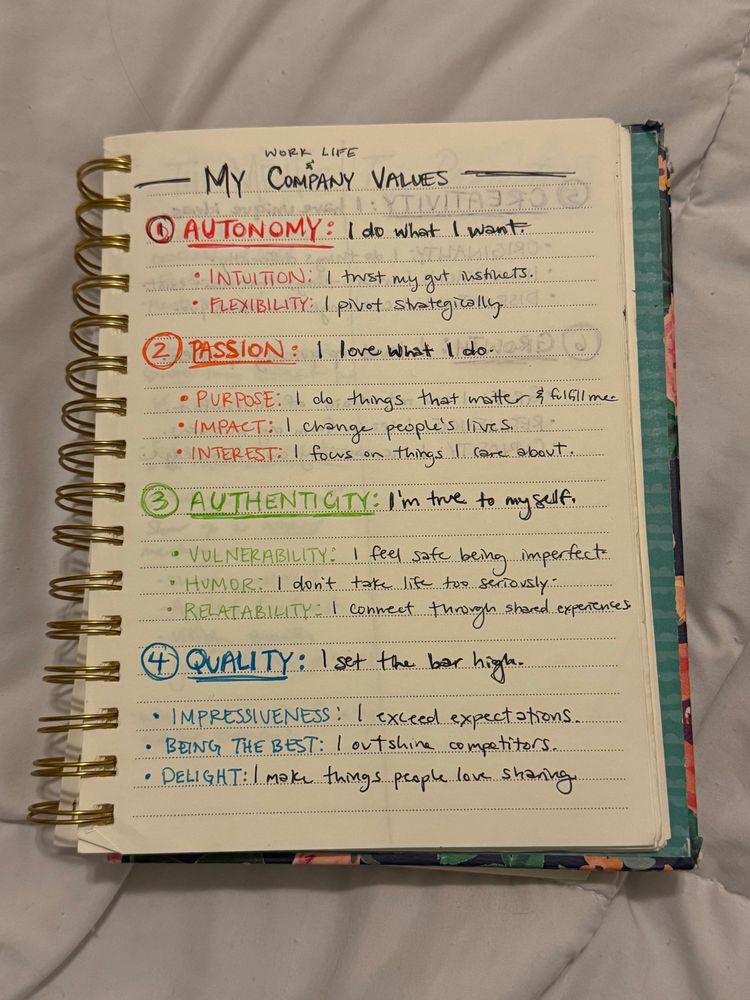 WORK LIFE
&
MY COMPANY VALUES
① AUTONOMY: I do what I want.
• INTUITION: I trust my gut instincts.
• FLEXIBILITY: I pivot strategically.
② PASSION: I love what I do.
• PURPOSE: I do things that matter & fulfill me
• IMPACT: I change people's lives.
• INTEREST: I focus on things I care about.
③ AUTHENTICITY: I'm true to myself.
• VULNERABILITY: I feel safe being imperfect.
• HUMOR: I don't take life too seriously.
• RELATABILITY: I connect through shared experiences
④ QUALITY: I set the bar high.
• IMPRESSIVENESS: I exceed expectations.
• BEING THE BEST: I outshine competitors.
• DELIGHT: I make things people love sharing.